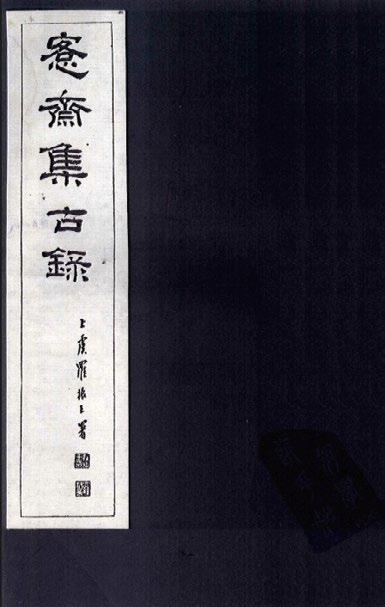 愙齋集古錄
上虞羅振玉署